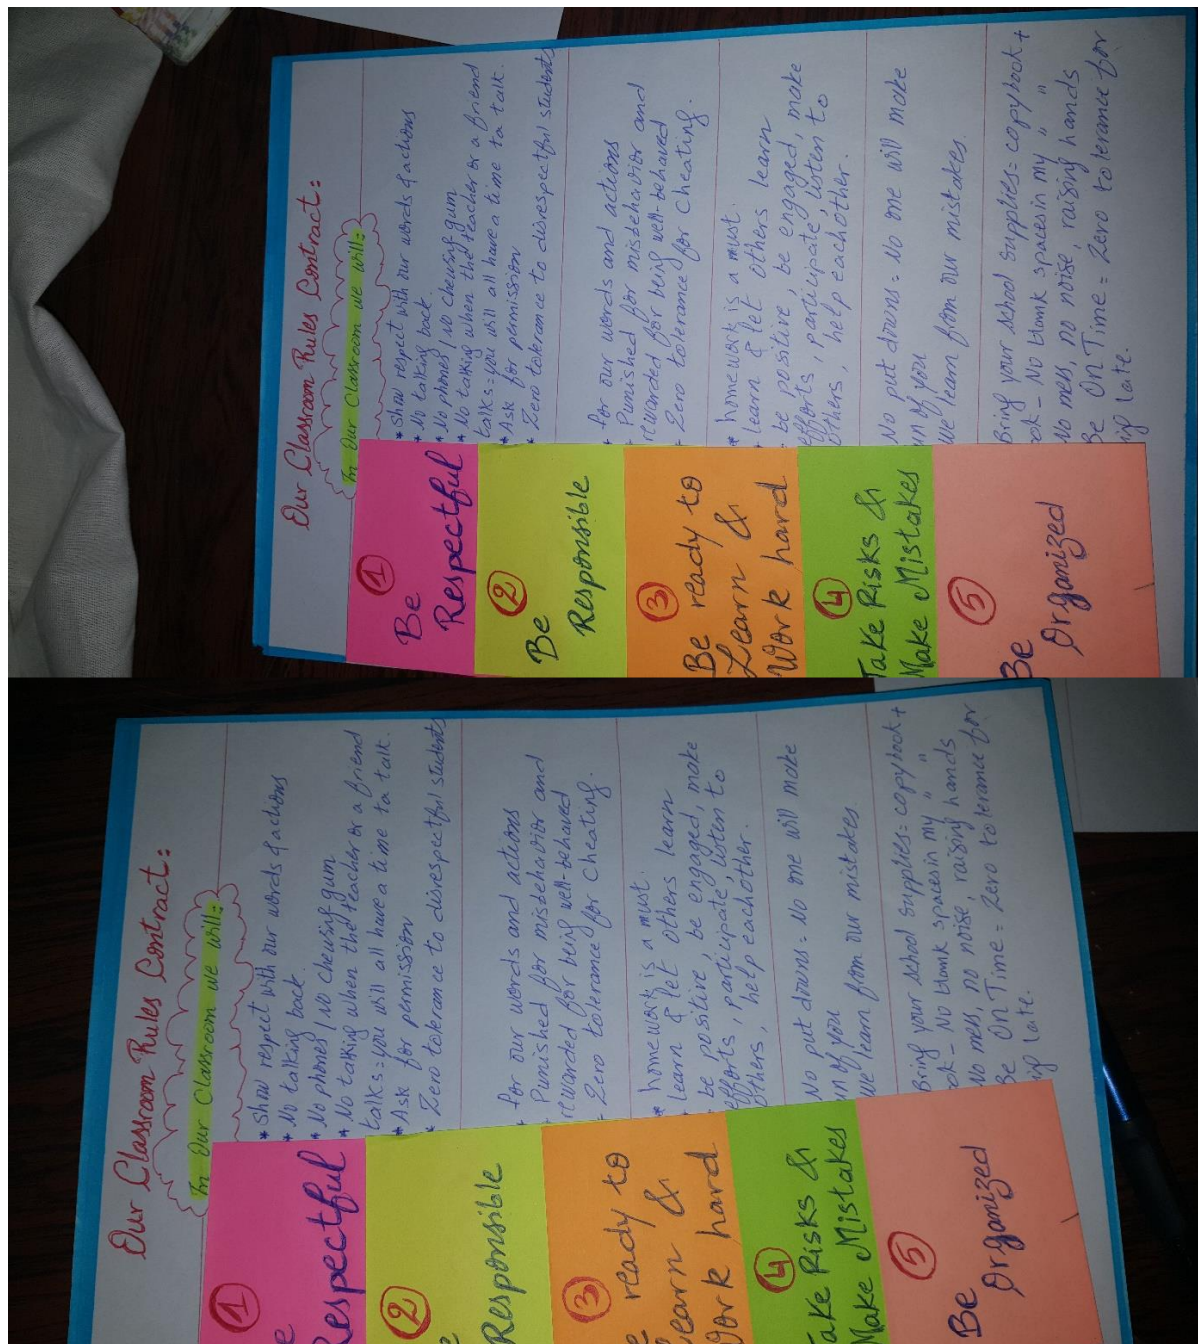 Our Classroom Rules Contract:
In Our Classroom we will:
1
Be
Respectful
* Show respect with our words & actions
* No talking back
* No phones / No chewing gum
* No talking when the teacher or a friend
talks = you will all have a time to talk.
* Ask for permission
* Zero tolerance to disrespectful students
2
Be
Responsible
for our words and actions
Punished for misbehavior and
rewarded for being well-behaved
Zero tolerance for cheating.
3
Be ready to
Learn &
Work hard
* homework is a must.
learn & let others learn
be positive, be engaged, make
efforts, participate, listen to
others, help eachother.
4
Take Risks &
Make Mistakes
No put downs = No one will make
un of you
We learn from our mistakes.
5
Be
Organized
Bring your school supplies = copybook +
ook - No blank spaces in my "
No mess, no noise, raising hands
Be On Time = Zero tolerance for
ing late.
Our Classroom Rules Contract:
In Our Classroom we will:
1
e
Respectful
* Show respect with our words & actions
* No talking back
* No phones / No chewing gum
* No talking when the teacher or a friend
talks = you will all have a time to talk.
* Ask for permission
* Zero tolerance to disrespectful students
2
e
Responsible
for our words and actions
Punished for misbehavior and
rewarded for being well-behaved
Zero tolerance for cheating.
3
e ready to
earn &
ork hard
* homework is a must.
learn & let others learn
be positive, be engaged, make
efforts, participate, listen to
others, help eachother.
4
ake Risks &
Make Mistakes
No put downs = No one will make
un of you
We learn from our mistakes.
5
Be
Organized
Bring your school supplies = copybook +
ok - No blank spaces in my "
No mess, no noise, raising hands
Be On Time = Zero tolerance for
ing late.